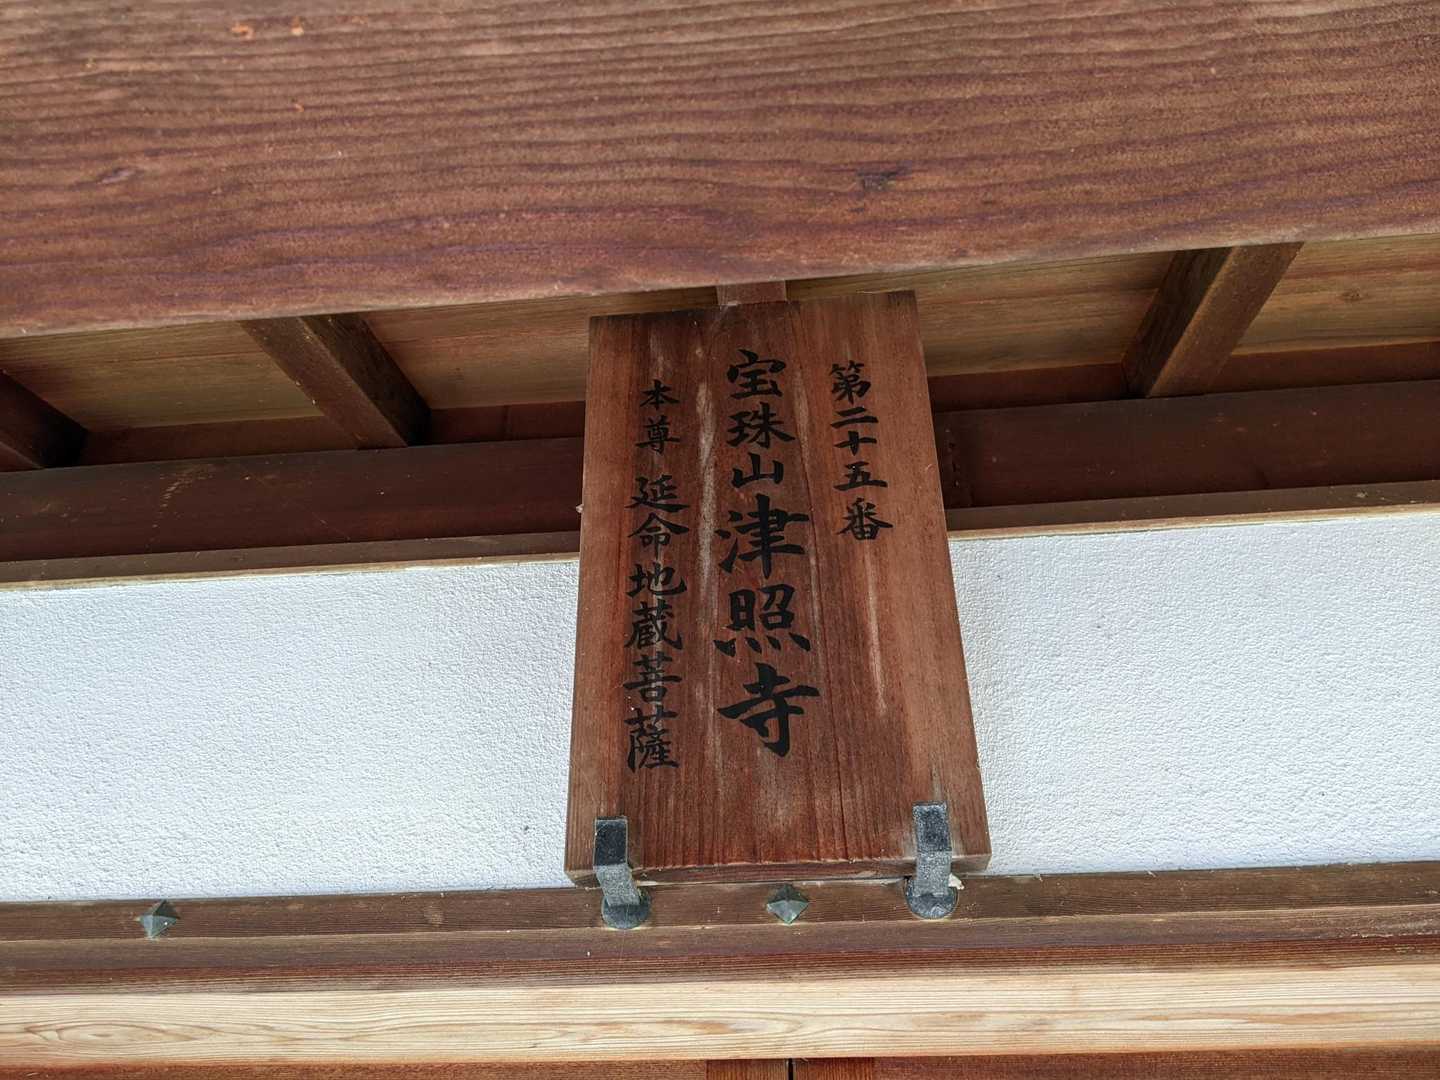 第二十五番
宝珠山津照寺
本尊 延命地蔵菩薩